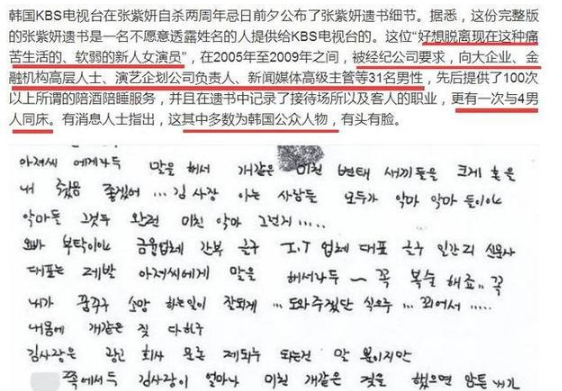 韩国KBS电视台在张紫妍自杀两周年忌日前夕公布了张紫妍遗书细节。据悉，这份完整版
的张紫妍遗书是一名不愿意透露姓名的人提供给KBS电视台的。这位“好想脱离现在这种痛
苦生活的、软弱的新人女演员”，在2005年至2009年之间，被经纪公司要求，向大企业、金
融机构高层人士、演艺企划公司负责人、新闻媒体高级主管等31名男性，先后提供了100次
以上所谓的陪酒陪睡服务，并且在遗书中记录了接待场所以及客人的职业，更有一次与4男
人同床。有消息人士指出，这其中多数为韩国公众人物，有头有脸。
아저씨 에게나두 말을 해서 개같은 미친 변태 새끼들을 크게 혼을
내 줬음 좋겠어 ... 김사장 아는 사람들 모두가 악마 악마 들이야
악마들 그것두 완전 미친 악마 그런거 .....
오빠 부탁이야 금융업체 간부 글구 I.T 업체 대표 글구 일간지 신문사
대표는 제발 아저씨에게 말을 해서나두 ~ 꼭 복술 해죠.. 꼭
내가 꿈꾸구 소망 하는일이 잘되게 ... 도와주겠단 식으루 ... 꾀어서 .....
내몸에 개같은 짓 다하구
김사장은 광고 회사 모른 제의두 되는건 안 보이지만
쪽에서두 김사장이 얼마나 미친 개같은 짓을 했으면 암튼 내가